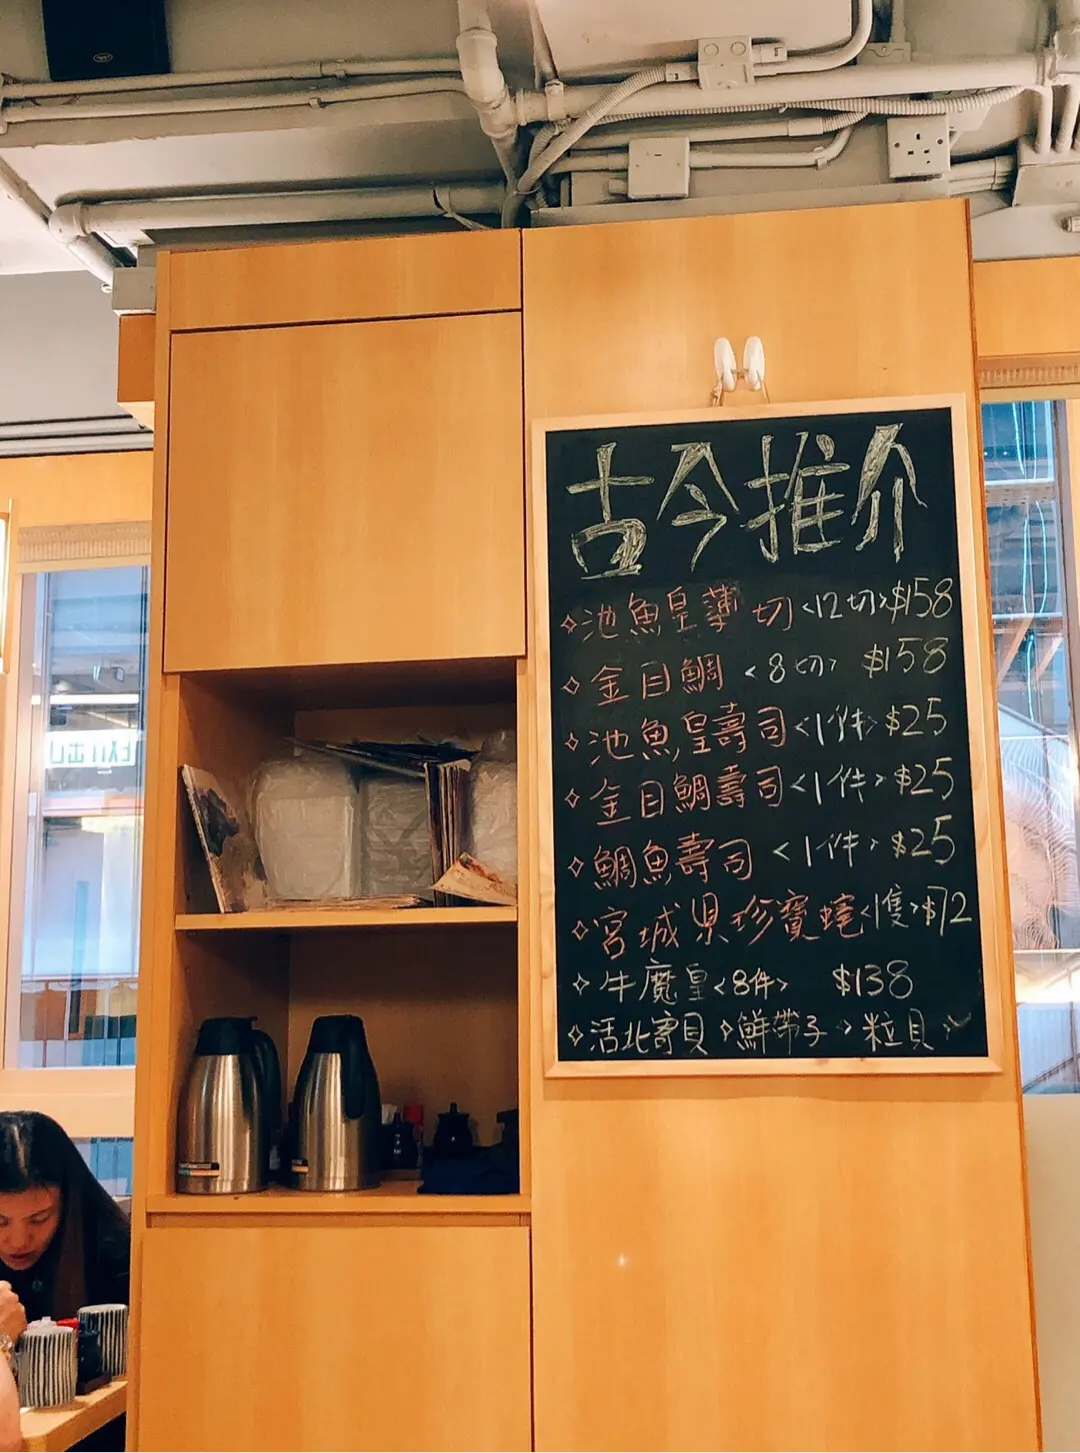 古今推介
池魚皇薄切<12切>$158
金目鯛<8切> $158
池魚皇壽司<1件>$25
金目鯛壽司<1件>$25
鯛魚壽司<1件>$25
宮城県珍寶蠔<1隻>$72
牛魔皇<8件> $138
活北寄貝 鮮帶子 粒貝
EXIT 出口